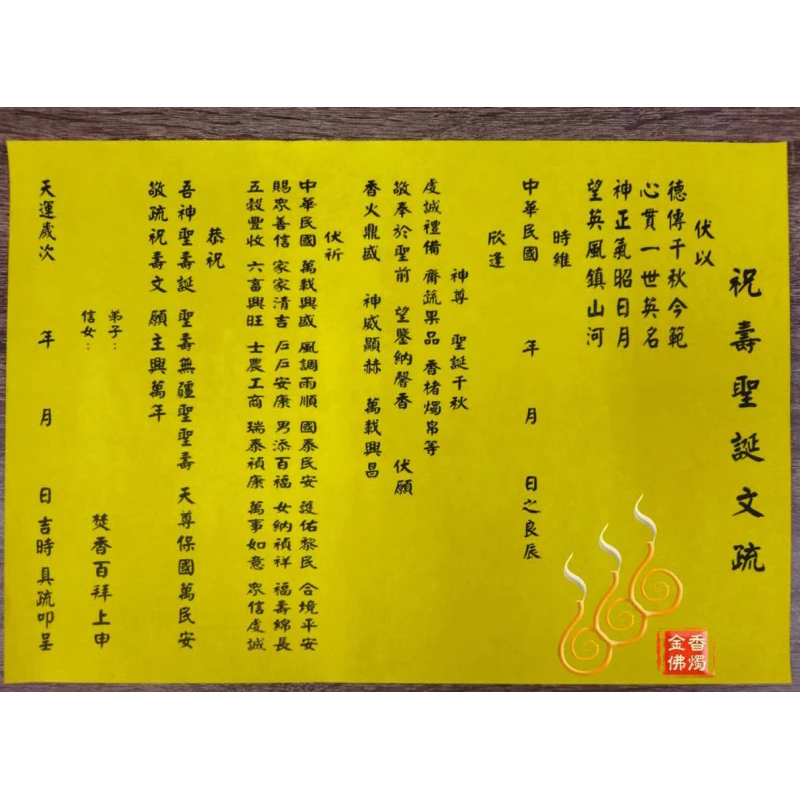 祝壽聖誕文疏
伏以
德傳千秋今範
心貫一世英名
神正氣昭日月
望英風鎮山河
時維
中華民國 年 月 日之良辰
欣逢
神尊 聖誕千秋
虔誠禮備 齋蔬果品 香楮燭帛等
敬奉於聖前 望鑒納馨香 伏願
香火鼎盛 神威顯赫 萬載興昌
伏祈
中華民國 萬載興盛 風調雨順 國泰民安 護佑黎民 合境平安
賜眾善信 家家清吉 戶戶安康 男添百福 女納禎祥 福壽綿長
五穀豐收 六畜興旺 士農工商 瑞泰禎康 萬事如意 眾信虔誠
恭祝
吾神聖壽誕 聖壽無疆聖聖壽 天尊保國萬民安
敬疏祝壽文 願主興萬年
弟子：
信女：
焚香百拜上申
天運歲次 年 月 日吉時具疏叩呈
香燭
金佛